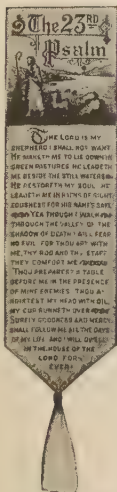 The 23RD
Psalm
THE LORD IS MY
SHEPHERD I SHALL NOT WANT
HE MAKETH ME TO LIE DOWN IN
GREEN PASTURES HE LEADETH
ME BESIDE THE STILL WATERS
HE RESTORETH MY SOUL HE
LEADETH ME IN PATHS OF RIGHT-
EOUSNESS FOR HIS NAME'S SAKE
YEA THOUGH I WALK
THROUGH THE VALLEY OF THE
SHADOW OF DEATH I WILL FEAR
NO EVIL FOR THOU ART WITH
ME, THY ROD AND THY STAFF
THEY COMFORT ME
THOU PREPAREST A TABLE
BEFORE ME IN THE PRESENCE
OF MINE ENEMIES THOU A-
NOINTEST MY HEAD WITH OIL
MY CUP RUNNETH OVER
SURELY GOODNESS AND MERCY
SHALL FOLLOW ME ALL THE DAYS
OF MY LIFE AND I WILL DWELL
IN THE HOUSE OF THE
LORD FOR
EVER